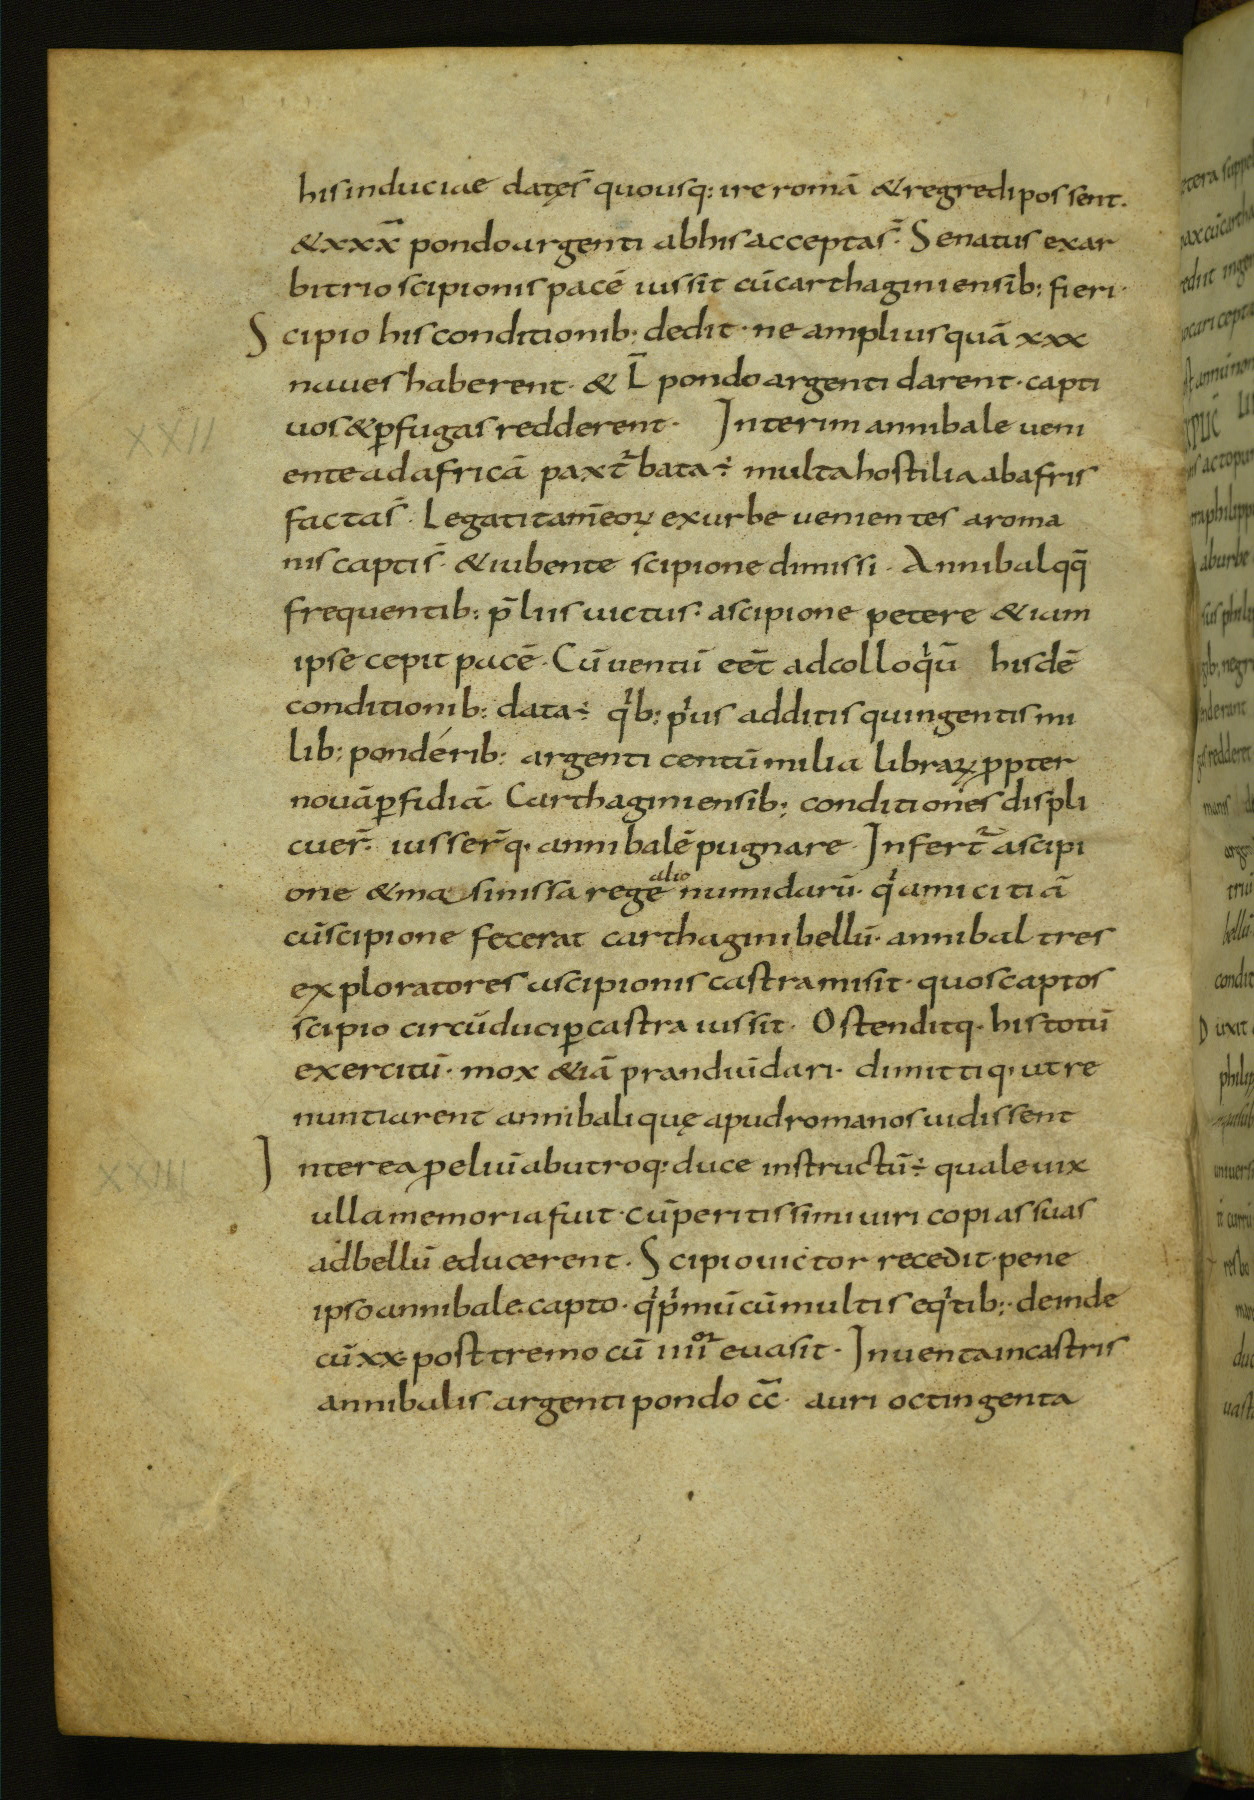 his induciae datę s̄ quousq: ire romā & regredi possent.
& xxx̄ pondo argenti ab his accepta s̄. Senatus ex ar
bitrio scipionis pacē iussit cū carthaginiensib: fieri.
Scipio his conditionib: dedit. ne amplius quā xxx
naues haberent. & L̄ pondo argenti darent. capti
uos & ꝑfugas redderent. Interim annibale ueni
ente ad africā pax t̄bata ÷ multa hostilia ab afris
facta s̄. Legati tam̄ eoꝝ ex urbe uenientes a roma
nis capti s̄. & iubente scipione dimissi. Annibal qq̄
frequentib: p̄liis uictus. a scipione petere & iam
ipse cepit pacē. Cū uentū eēt ad colloqiū hisdē
conditionib: data ÷ qib: pius additis quingentis mi
lib: ponderib: argenti centū milia libraꝝ ꝓpter
nouā ꝑfidiā. Carthaginiensib: conditiones displi
cuer̄. iusser̄q. annibalē pugnare. Infert̄ a scipi
one & masinissa rege alio numidarū. qi amicitiā
cū scipione fecerat carthagini bellū. annibal tres
exploratores a scipionis castra misit. quos captos
scipio circūduci ꝑ castra iussit. Ostenditq. his totū
exercitū. mox & iā prandiū dari. dimittiq. ut re
nuntiarent annibali quę apud romanos uidissent
Interea ꝓeliū ab utroq: duce instructū ÷ quale uix
ulla memoria fuit. cū peritissimi uiri copias suas
ad bellū educerent. Scipio uictor recedit. pene
ipso annibale capto. qi pimū cū multis eqitib:. deinde
cū xx. posttremo cū iiiior euasit. Inuenta in castris
annibalis argenti pondo c̄c̄. auri octingenta
XXII
XXIII